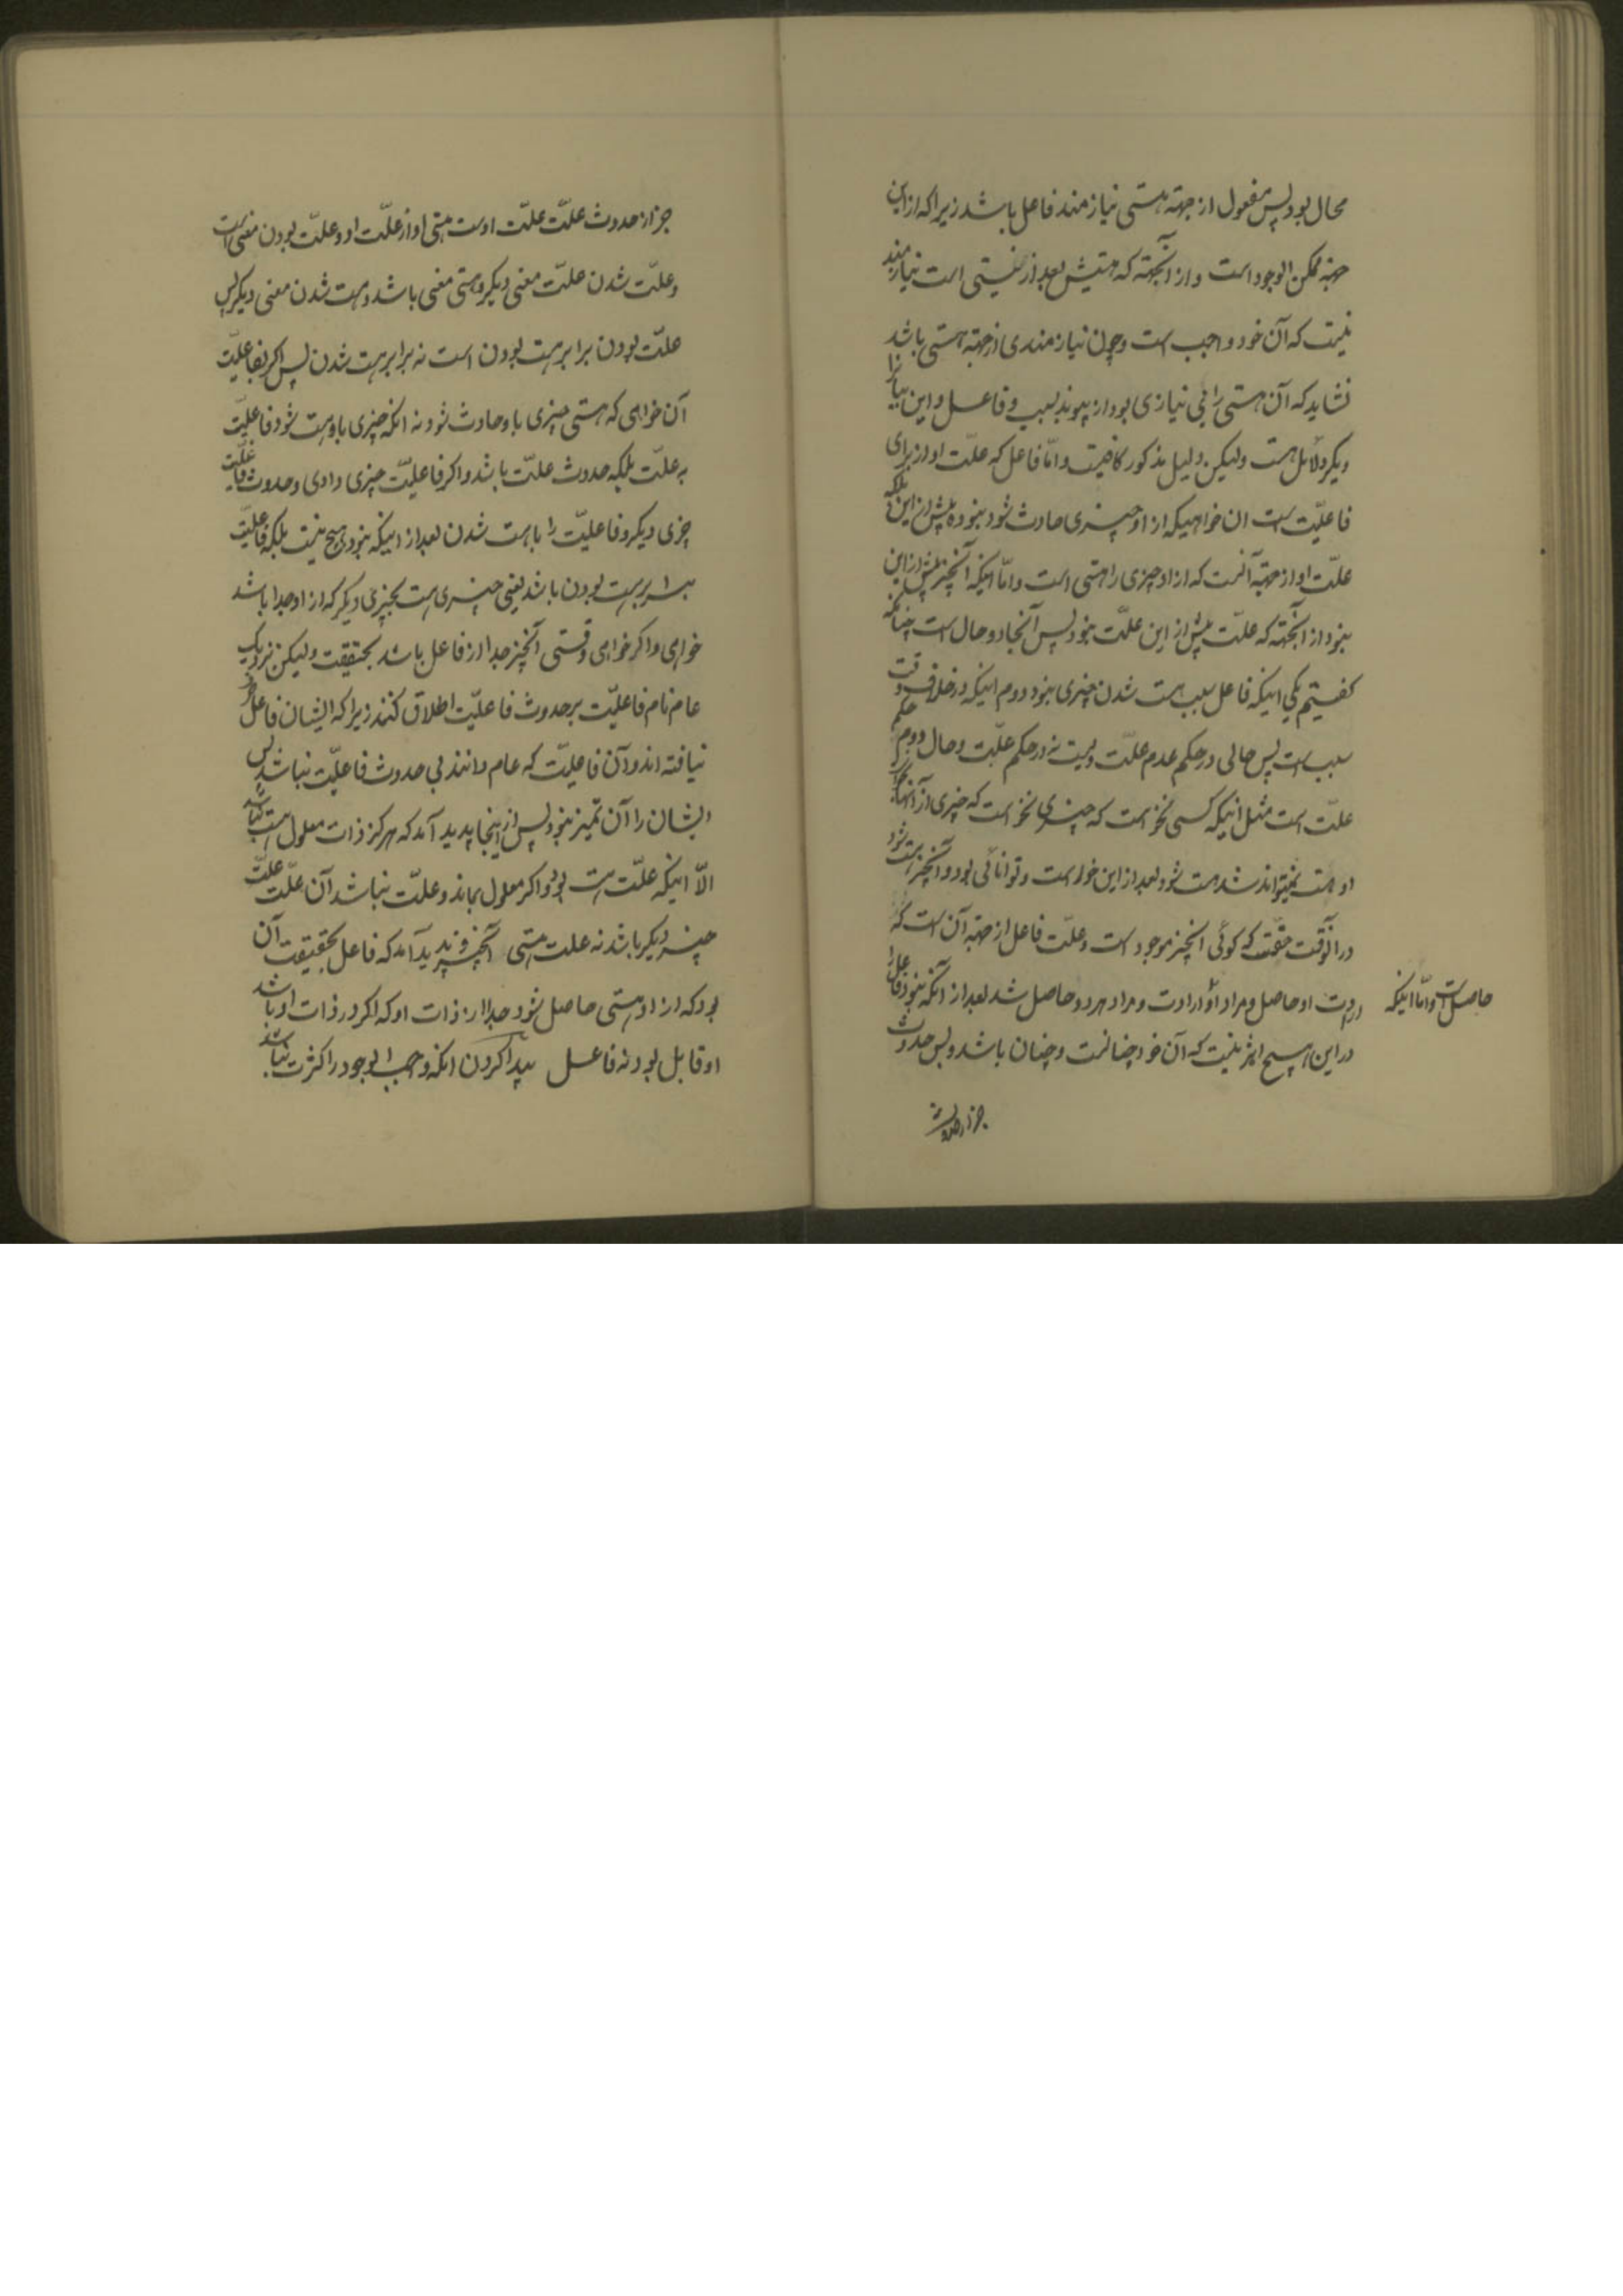 محال بود پس مفعول از جهة هستی نیازمند فاعل باشد زیرا که از این
جهة ممکن الوجود است و از آنجهته که هستیش بعد از نیستی است نیازمند
نیست که آن خود واجب است و چون نیازمندی از جهة هستی باشد
نشاید که آن هستی را بی نیازی بود از پیوند بسبب و فاعل و این بیانرا
دیگر دلائل هست ولیکن دلیل مذکور کافیست و امّا فاعل که علّت او از برای
فاعلیّت است ان خواهیکه از او چیزی حادث شود نبوده پیش از این بلکه
علّت او از جهة آنست که از او چیزی را هستی است و امّا اینکه آنچیز پیش از این
نبود از آنجهته که علّت پیش از این علّت نبود پس آنجا دو حال است چنانکه
کفتیم یکی اینکه فاعل سبب هست شدن چیزی نبود دوم اینکه در خلاف وقت
سبب است پس حالی در حکم عدم علّت ویست نه در حکم علّیت و حال دوم حکم
علّت است مثل اینکه کسی نخواست که چیزی نخواست که چیزی از آنها که
او هست نمیتواند شد هست شود بعد از این خواست و توانائی بود و آنچیز هست شود
در آنوقت حقّست که کوئی آنچیز موجود است و علّت فاعل از جهة آن است که
ارادت او حاصل و مراد او و ارادت و مراد هر دو حاصل شد بعد از آنکه نبود فاعل را
حاصل است و امّا اینکه
در این هیچ اثر نیست که آن خود چنانست و چنان باشد و پس حدوث
جز از حدوث
جز از حدوث علّت علّت اوست هستی او از علّت او و علّت بودن معنی است
و علّت شدن علّت معنی دیکر و هستی معنی باشد و هست شدن معنی دیکر پس
علّت بودن برابر هست بودن است نه برابر هست شدن پس اکر بفاعلیّت
آن خواهی که هستی چیزی باو حادث شود نه انکه چیزی باو هست شود فاعلیّت
نه علّت بلکه حدوث علّت باشد و اکر فاعلیّت چیزی دادی و حدوث فاعلیّت
چزی دیکر و فاعلیّت را با هست شدن بعد از اینکه نبود هیچ نیست بلکه فاعلیّت
برابر هست بودن باشد یعنی چیزی هست بچیزی دیکر که از او جدا باشد
خواهی و اکر خواهی وقتی آنچیز جدا از فاعل باشد بحقیقت ولیکن نزدیک
عام نام فاعلیّت بر حدوث فاعلیّت اطلاق کنند زیرا که ایشان فاعل جز
نیافته اند و آن فاعلیّت که عام دانند بی حدوث فاعلیّت نباشد پس
ایشان را آن تمیز نبود پس از اینجا پدید آمد که هرکز ذات معلول هست نباشد
الّا اینکه علّت هست بود و اکر معلول بماند و علّت نباشد آن علّت علّت
چیز دیکر باشد نه علت هستی آنچیز و پدید آمد که فاعل بحقیقت آن
بود که از او هستی حاصل شود جدا از ذات او که اکر در ذات او باشد
او قابل بود نه فاعل پیدا کردن انکه واجب الوجود را کثرت نباشد